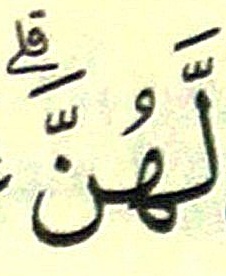 لَّهُنَّ ۗ